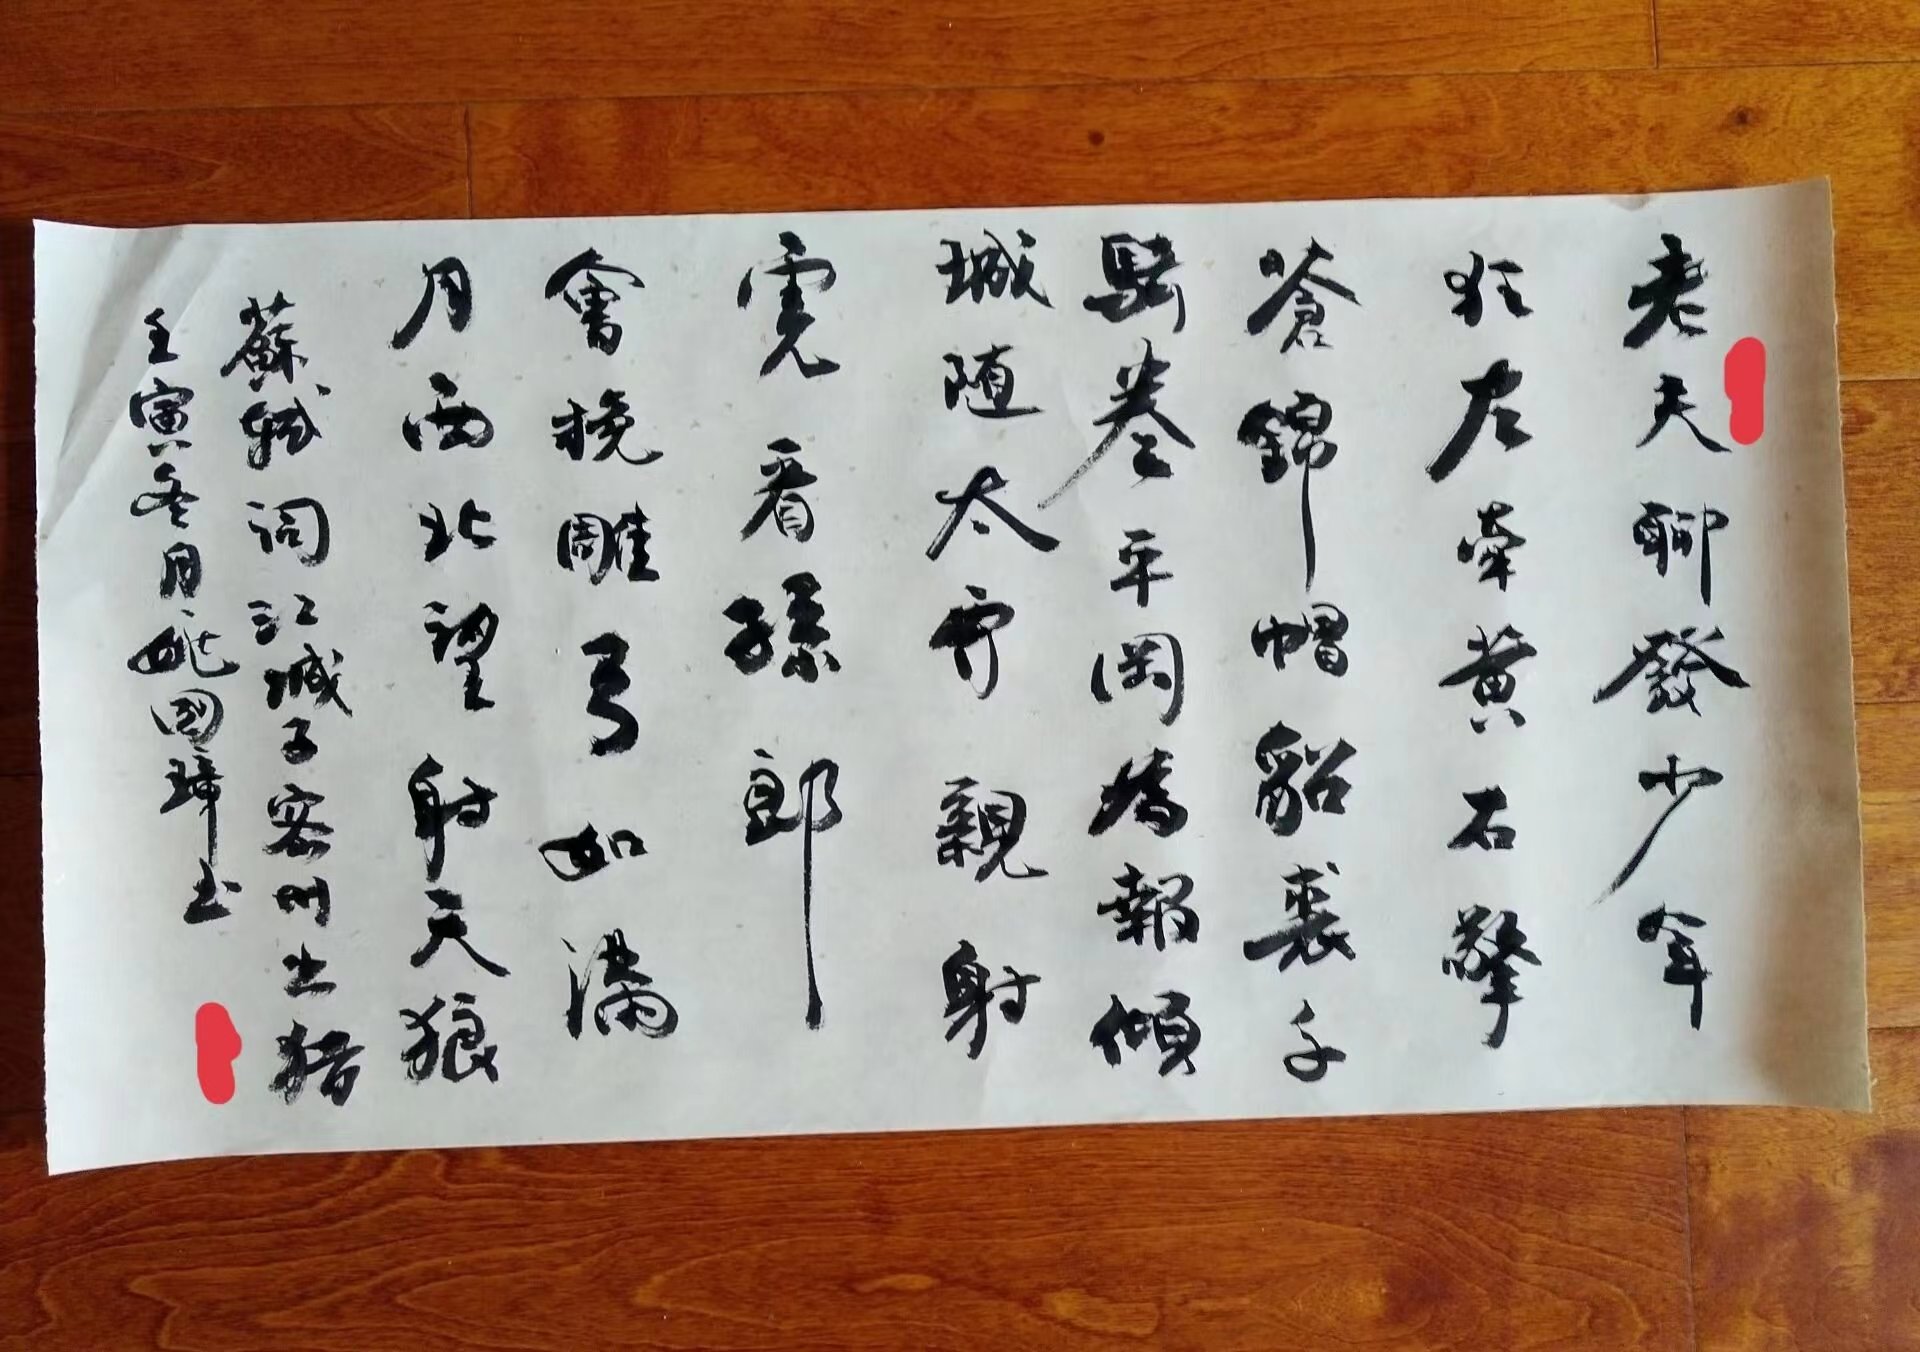 老夫聊發少年
狂左牵黄右擎
蒼錦帽貂裘千
騎卷平岡為報傾
城随太守親射
虎看孫郎
會挽雕弓如满
月西北望射天狼
蘇軾词江城子密州出猎
壬寅冬月姚國璋书